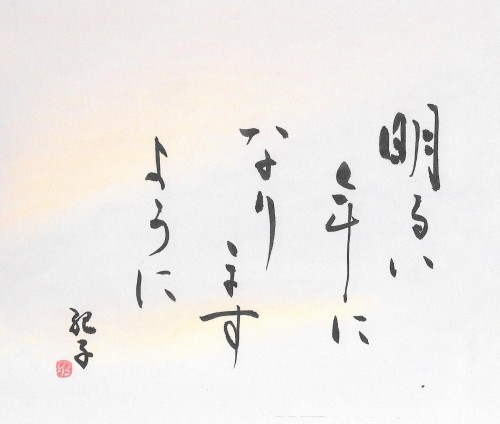 明るい
年に
なり
ます
ように
紀子